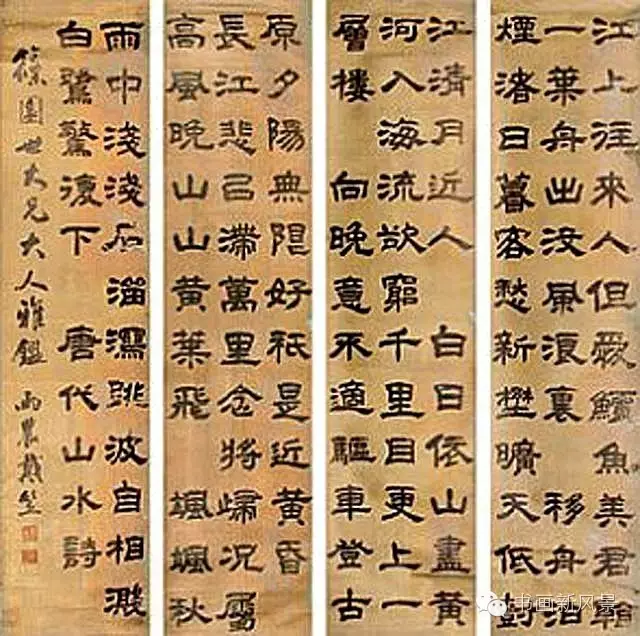 江上往來人但愛鱸魚美君看
一葉舟出沒風浪裏 移舟泊
煙渚日暮客愁新壄曠天低尌
江清月近人 白日依山盡黃
河入海流欲窮千里目更上一
層樓 向晚意不適驅車登古
原夕陽無限好祇是近黃昏
長江悲已滯萬里念將歸況屬
高風晚山山黃葉飛 颯颯秋
雨中淺淺石溜瀉跳波自相濺
白鷺驚復下 唐代山水詩
篠園世大兄大人雅鑑 雨農戴笠
书画新风景